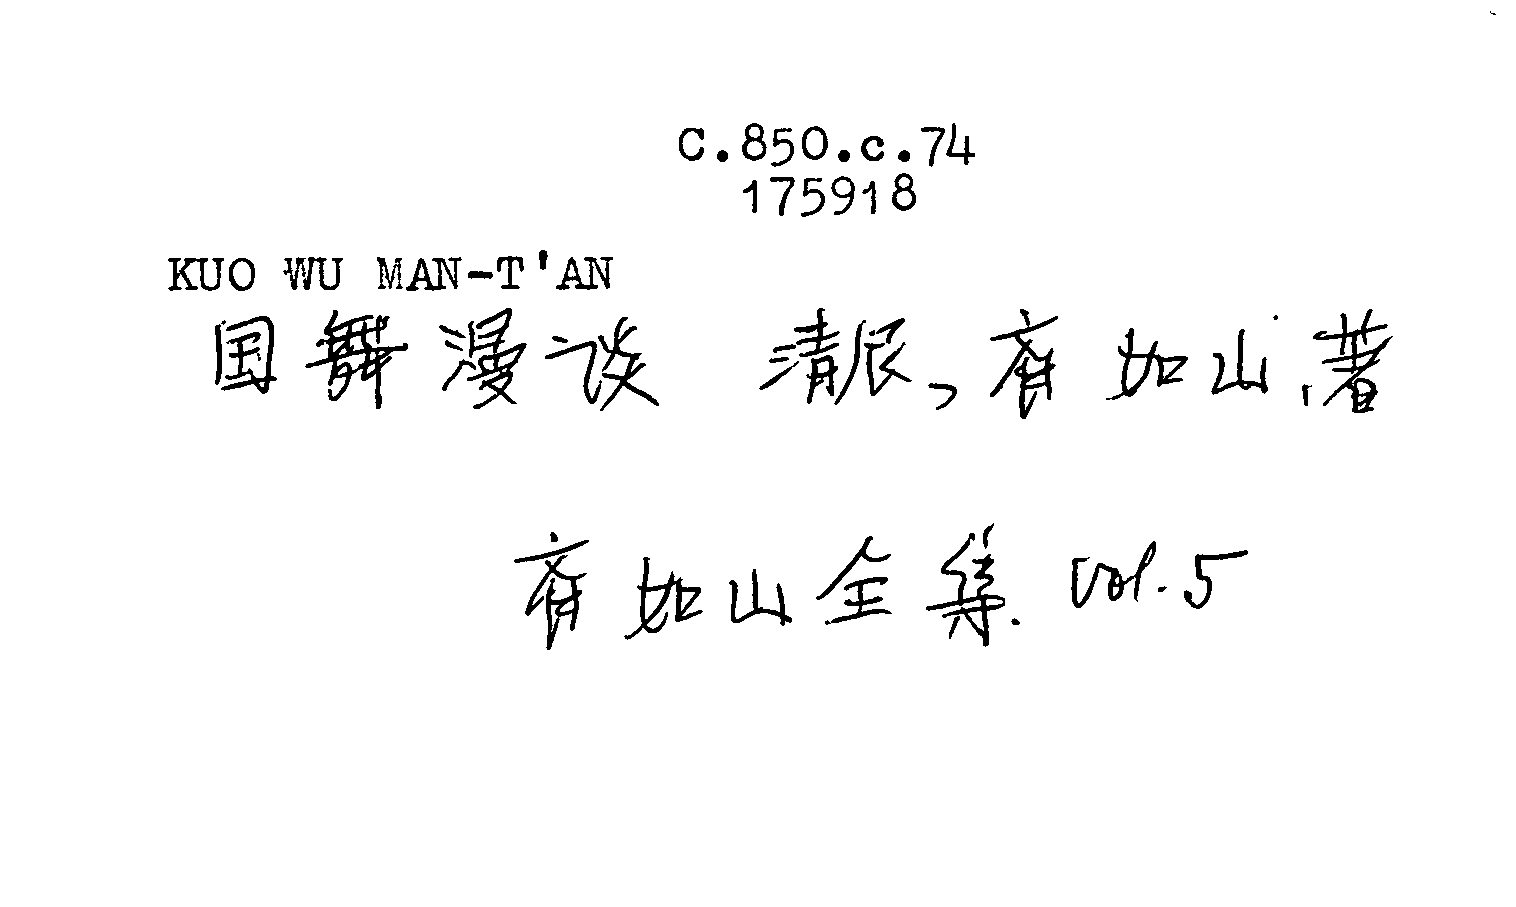 C.850.c.74
175918
KUO WU MAN-T'AN
国舞漫谈 清辰、齊如山、著
齊如山全集. vol. 5